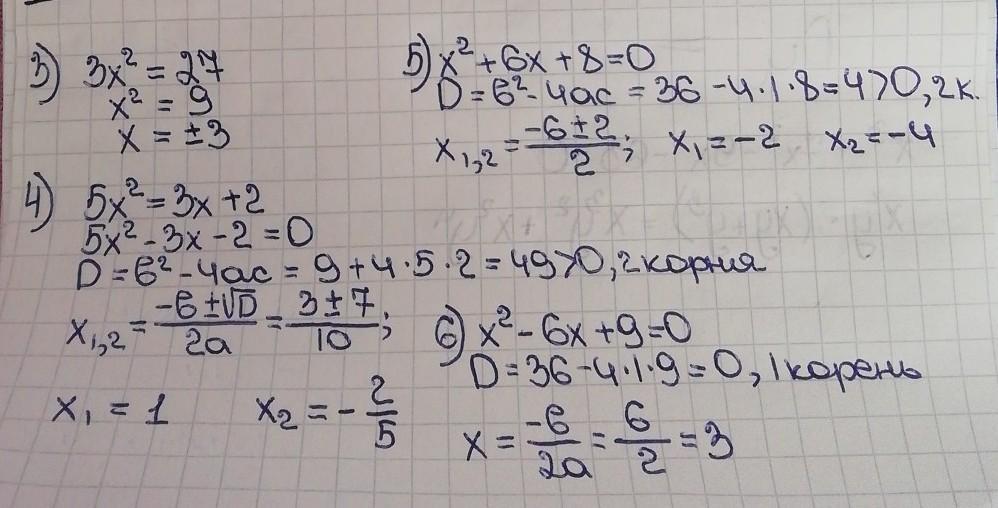 3) 3x² = 27
x² = 9
x = ±3
4) 5x² = 3x + 2
5x² - 3x - 2 = 0
D = b² - 4ac = 9 + 4 · 5 · 2 = 49 > 0, 2 корня
x₁,₂ = (-b ± √D)/(2a) = (3 ± 7)/10;
x₁ = 1 x₂ = -2/5
5) x² + 6x + 8 = 0
D = b² - 4ac = 36 - 4 · 1 · 8 = 4 > 0, 2 к.
x₁,₂ = (-6 ± 2)/2; x₁ = -2 x₂ = -4
6) x² - 6x + 9 = 0
D = 36 - 4 · 1 · 9 = 0, 1 корень
x = -b/(2a) = 6/2 = 3